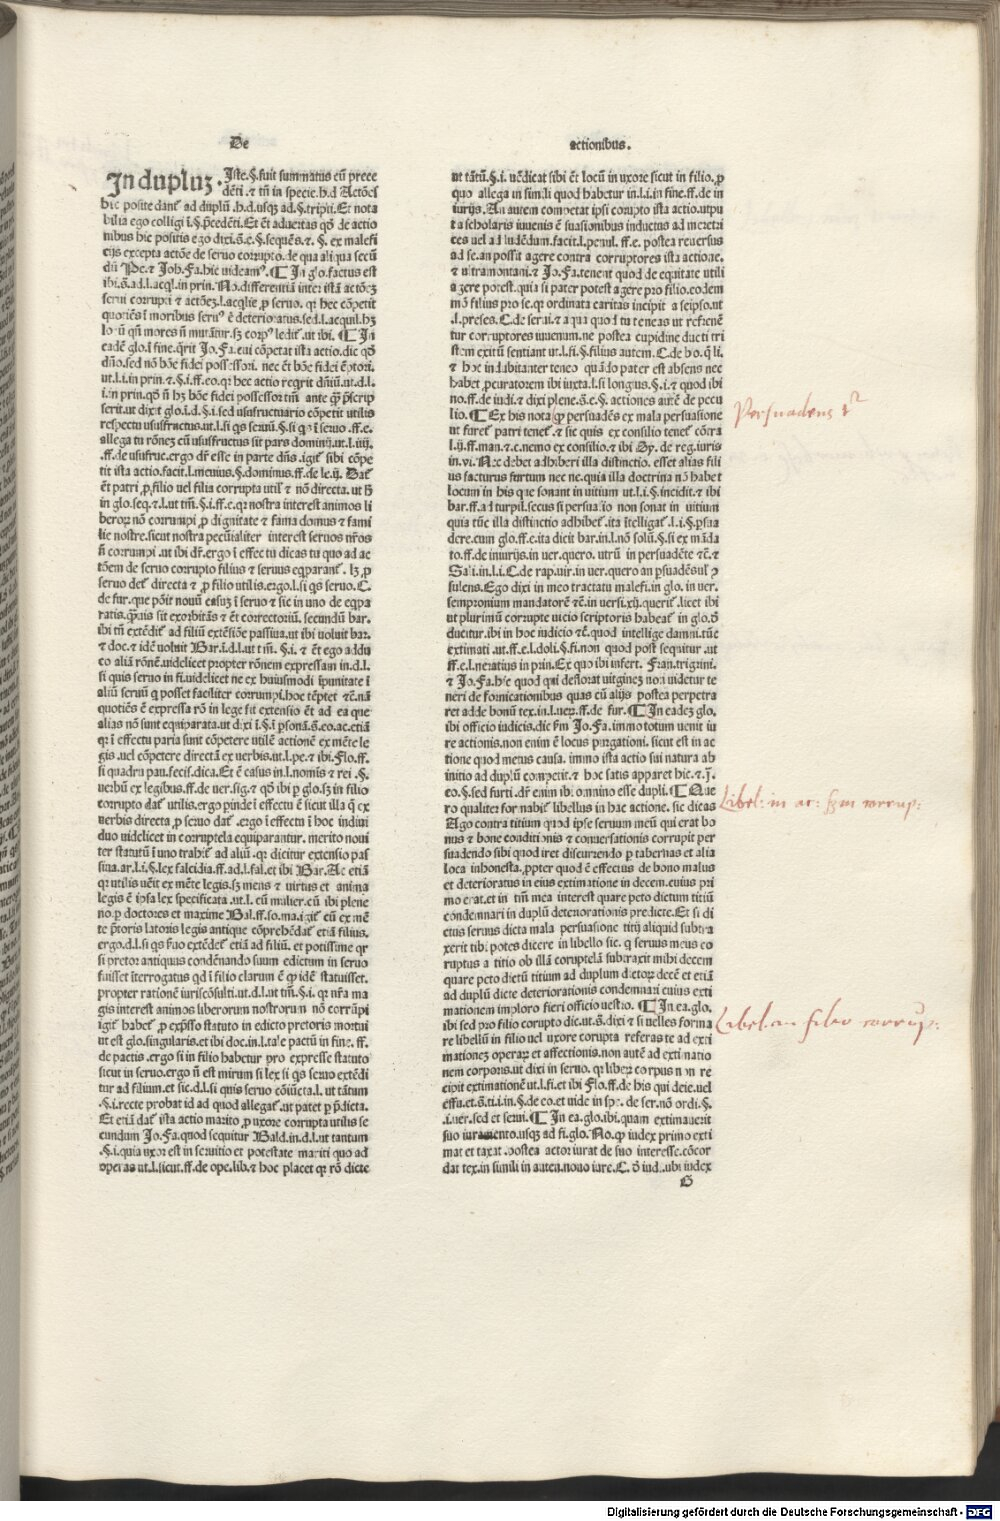 De
actionibus.
In dupluʒ. Iste.§.fuit summatus cū prece
dēti.⁊ tn̄ in specie.h.d Actōes
hic posite dant̄ ad duplū.h.d.usqʒ ad.§.tripli.Et nota
bilia ego colligi ī.§.p̄cedēti.Et ēt aduertas qđ de actio
nibus hic positis ego dixi.s̄.e.§.sequēs.⁊.§. ex malefi
cijs excepta actōe de seruo corrupto.de qua aliqua secū
dū Pe.⁊ Joh.Fa.hic uideam⁹.¶ In glo.factus est
ibi.s̄.ad.l.acql.in prin.No.differentiā inter istā actōeʒ
serui corrupti ⁊ actōeʒ.l.acqlie ꝓ seruo. qr hec cōpetit
quotiēs ī moribus seru⁹ ē deterioratus.sed.l.acquil.hʒ
locū qn̄ mores n̄ mutāt̄ur.sʒ corp⁹ ledit̄.ut ibi. ¶ In
eadē glo.ī fine.q̄rit Jo.Fa.cui cōpetat ista actio.dic qđ
dn̄o.sed nō bōe fidei possessori. nec ēt bōe fidei ēptori.
ut.l.i.in prin.⁊.§.i.ff.eo.qr hec actio reqrit dn̄iū.ut.d.l.
i.in prin.qđ n̄ hʒ bōe fidei possessor tn̄ ante qʒ p̄scrip
serit.ut dixit glo.i.d.§.i.sed usufructuario cōpetit utilis
respectu ususfructus.ut.l.si qs seruū.§.si qs ī seruo .ff.e.
allega tu rōneʒ cū ususfructus sit pars dominij.ut.l.iiij.
.ff.de usufruc.ergo dr̄ esse in parte dn̄s .igit̄ sibi cōpe
tit ista actio.facit.l.menius.§.dominus.ff.de le.ij. Dat̄
ēt patri ꝓ filio uel filia corrupta util̄ ⁊ nō directa.ut h̄
in glo.seq.⁊.l.ut tm̄.§.i.ff.e.qr nostra interest animos li
beroꝝ nō corrumpi ꝓ dignitate ⁊ fama domus ⁊ fami
lie nostre.sicut nostra pecūialiter interest seruos nr̄os
n̄ corrumpi .ut ibi dr̄.ergo ī effectu dicas tu quo ad ac
tōem de seruo corrupto filius ⁊ seruus eqparant̄. lʒ ꝓ
seruo det̄ directa ⁊ ꝓ filio utilis.ergo.l.si qs seruo. C.
de fur.que pōit nouū casuʒ ī seruo ⁊ sic in uno de eqpa
ratis.quāuis sit exorbitās ⁊ ēt correctoriū. secundū bar.
ibi tn̄ extēdit̄ ad filiū extēsiōe passiua.ut ibi uoluit bar.
⁊ doc.⁊ idē uoluit Bar.i.d.l.ut tm̄. §.i. ⁊ ēt ego addu
co aliā rōnē.uidelicet propter rōnem expressam in.d.l.
si quis seruo in fi.uidelicet ne ex huiusmodi īpunitate ī
aliū seruū q posset faciliter corrumpi.hoc tēptet ⁊c̄.nā
quotiēs ē expressa rō in lege fit extensio ēt ad ea que
alias nō sunt equiparata.ut dixi ī.§.ī psonā.s̄.eo.ac.etiā
qr ī effectu paria sunt cōpetere utilē actionē ex mēte le
gis .uel cōpetere directā ex uerbis.ut.l.pe.⁊ ibi.Flo.ff.
si quadru pau.fecis.dica.Et ē casus in.l.nomis ⁊ rei .§.
uerbū ex legibus.ff.de uer.sig.⁊ qđ ibi ꝑ glo.sʒ in filio
corrupto dat̄ utilis.ergo pinde ī effectu ē sicut illa q̄ ex
uerbis directa ꝓ seruo dat̄ .ergo ī effectu ī hoc indiui
duo uidelicet in corruptela equiparantur. merito noui
ter statutū ī uno trahit̄ ad aliū.qr dicitur extensio pas
siua.ar.l.i.§.lex falcidia.ff.ad.l.fal.et ibi Bar.Ac etiā
qr utilis uēit ex mēte legis.sʒ mens ⁊ uirtus et anima
legis ē ipsa lex specificata .ut.l. cū mulier.cū ibi plene
no.ꝑ doctores et maxime Bal.ff.so.ma.igit̄ cū ex mē
te p̄toris latoris legis antique cōprehēdat̄ etiā filius.
ergo.d.l.si qs s̄uo extēdet̄ etiā ad filiū. et potissime qr
si pretor antiquus condēnando suum edictum in seruo
fuisset īterrogatus qđ ī filio clarum ē qʒ idē statuisset.
propter rationē iuriscōsulti.ut.d.l.ut tm̄.§.i. qr nr̄a ma
gis interest animos liberorum nostrorum nō corrūpi
igit̄ habet̄ ꝓ exp̄sso statuto in edicto pretoris mortui
ut est glo.singularis.et ibi doc.in.l.tale pactū in fine. ff.
de pactis .ergo si in filio habetur pro expresse statuto
sicut in seruo.ergo n̄ est mirum si lex si qs seruo extēdi
tur ad filium.et sic.d.l.si quis seruo cōiūcta.l. ut tātum
.§.i.recte probat id ad quod allegat̄.ut patet ꝑ p̄dicta.
Et etiā dat̄ ista actio marito ꝓ uxore corrupta utilis se
cundum Jo.Fa.quod sequitur Bald.in.d.l.ut tantum
.§.i.quia uxor est in seruitio et potestate mariti quo ad
operas ut.l.sicut.ff.de ope.lib.⁊ hoc placet qr rō dicte
ut tātū.§.i. uēdicat sibi ēt locū in uxore sicut in filio.ꝓ
quo allega in simili quod habetur in.l.i.in fine.ff.de in
iurijs.An autem competat ipsi corupto ista actio.utpu
ta scholaris iuuenis ē suasionibus inductus ad meretri
ces uel ad ludēdum.facit.l.penul.ff.e. postea reuersus
ad se.an possit agere contra corruptores ista actione.
⁊ ultramontani.⁊ Jo.Fa.tenent quod de equitate utili
agere potest.quia si pater potest agere pro filio.eodem
mō filius pro se.qr ordinata caritas incipit a seipso.ut
.l.preses.C.de serui.⁊ aqua quod tu teneas ut refrenē
tur corruptores iuuenum.ne postea cupidine ducti tri
stem exitū sentiant ut.l.fi.§.filius autem.C.de bo.q̄ li.
⁊ hoc indubitanter teneo quādo pater est absens nec
habet ꝓcuratorem ibi iuxta.l.si longius.§.i.⁊ quod ibi
no.ff.de iudi.⁊ dixi plene.s̄.e.§. actiones autē de pecu
lio. ¶ Ex his nota qʒ persuadēs ex mala persuasione
ut furet̄ patri tenet̄.⁊ sic quis ex consilio tenet̄ cōtra
l.ij.ff.man.⁊ c.nemo ex consilio.⁊ ibi Dy. de reg.iuris
in.vi. Nec debet adhiberi illa distinctio. esset alias fili
us facturus furtum nec ne.quia illa doctrina nō habet
locum in his que sonant in uitium ut.l.i.§.incidit.⁊ ibi
bar.ff.ad turpil.secus si persuasio non sonat in uitium
quia tūc illa distinctio adhibet̄.ita ītelligat̄.l.i.§.psua
dere.cum glo.ff.e.ita dicit bar.in.l.nō solū.§.si ex māda
to.ff.de iniurijs.in uer.quero. utrū in persuadēte ⁊c̄.⁊
Sali.in.l.i.C.de rap.uir.in uer.quero an psuadēs uł ꝯ
sulens.Ego dixi in meo tractatu malefi.in glo. in uer.
sempronium mandatorē ⁊c̄.in uersi.xij.querit̄.licet ibi
ut plurimū corrupte uicio scriptoris habeat̄ in glo.ꝺ
ducitur.ibi in hoc iudicio ⁊c̄.quod intellige damni.tūc
extimati .ut.ff.e.l.doli.§.fi.non quod post sequitur .ut
ff.e.l.neratius in prin.Ex quo ibi infert. Fran.trigrini.
⁊ Jo.Fa.hic quod qui deflorat uirgineʒ non uidetur te
neri de fornicationibus quas cū alijs postea perpetra
ret adde bonū tex.in.l.ueꝝ.ff.de fur. ¶ In eadeʒ glo.
ibi officio iudicis.dic ꝑm Jo.Fa.immo totum uenit iu
re actionis.non enim ē locus purgationi. sicut est in ac
tione quod metus causa. immo ista actio sui natura ab
initio ad duplū competit.⁊ hoc satis apparet hic.⁊.j̄.
eo.§.sed furti. dr̄ enim ibi omnino esse dupli. ¶ Que
ro qualiter formabit̄ libellus in hac actione. sic dicas
Ago contra titium quod ipse seruum meū qui erat bo
nus ⁊ bone conditionis ⁊ conuersationis corrupit per
suadendo sibi quod iret discurrendo ꝑ tabernas et alia
loca inhonesta.ꝓpter quod ē effectus de bono malus
et deterioratus in eius extimatione in decem.cuius pri
mo erat.et in tm̄ mea interest quare peto dictum titiū
condemnari in duplū deteriorationis predicte.Et si di
ctus seruus dicta mala persuasione titij aliquid subtra
xerit tibi potes dicere in libello sic. q seruus meus co
ruptus a titio ob illā coruptelā subtraxit mihi decem
quare peto dictū titium ad duplum dictoꝝ decē et etiā
ad duplū dicte deteriorationis condemnari cuius exti
mationem imploro fieri officio uestro. ¶ In ea.glo.
ibi sed pro filio corupto dic.ut.s̄.dixi ⁊ si uelles forma
re libellū in filio uel uxore corupta referas te ad exti
mationeʒ operaꝝ et affectionis.non autē ad extimatio
nem corporis.ut dixi in seruo. qr libeꝝ corpus non re
cipit extimationē ut.l.fi.et ibi Flo.ff.de his qui deie.uel
effu.et.s̄.ti.i.in.§.de co.et uide in spe. de ser.nō ordi.§.
i.uer.sed et serui. ¶ In ea.glo.ibi.quam extimauerit
suo iuramento.usqʒ ad fi.glo.No.qʒ iudex primo exti
mat et taxat.postea actor iurat de suo interesse.cōcor
dat tex.in simili in auten.nouo iure.C.ꝺ iud..ubi iudex
G
Persuadens
Libel: in ac: corrup:
Libel: in filio corrup:
Digitalisierung gefördert durch die Deutsche Forschungsgemeinschaft - DFG